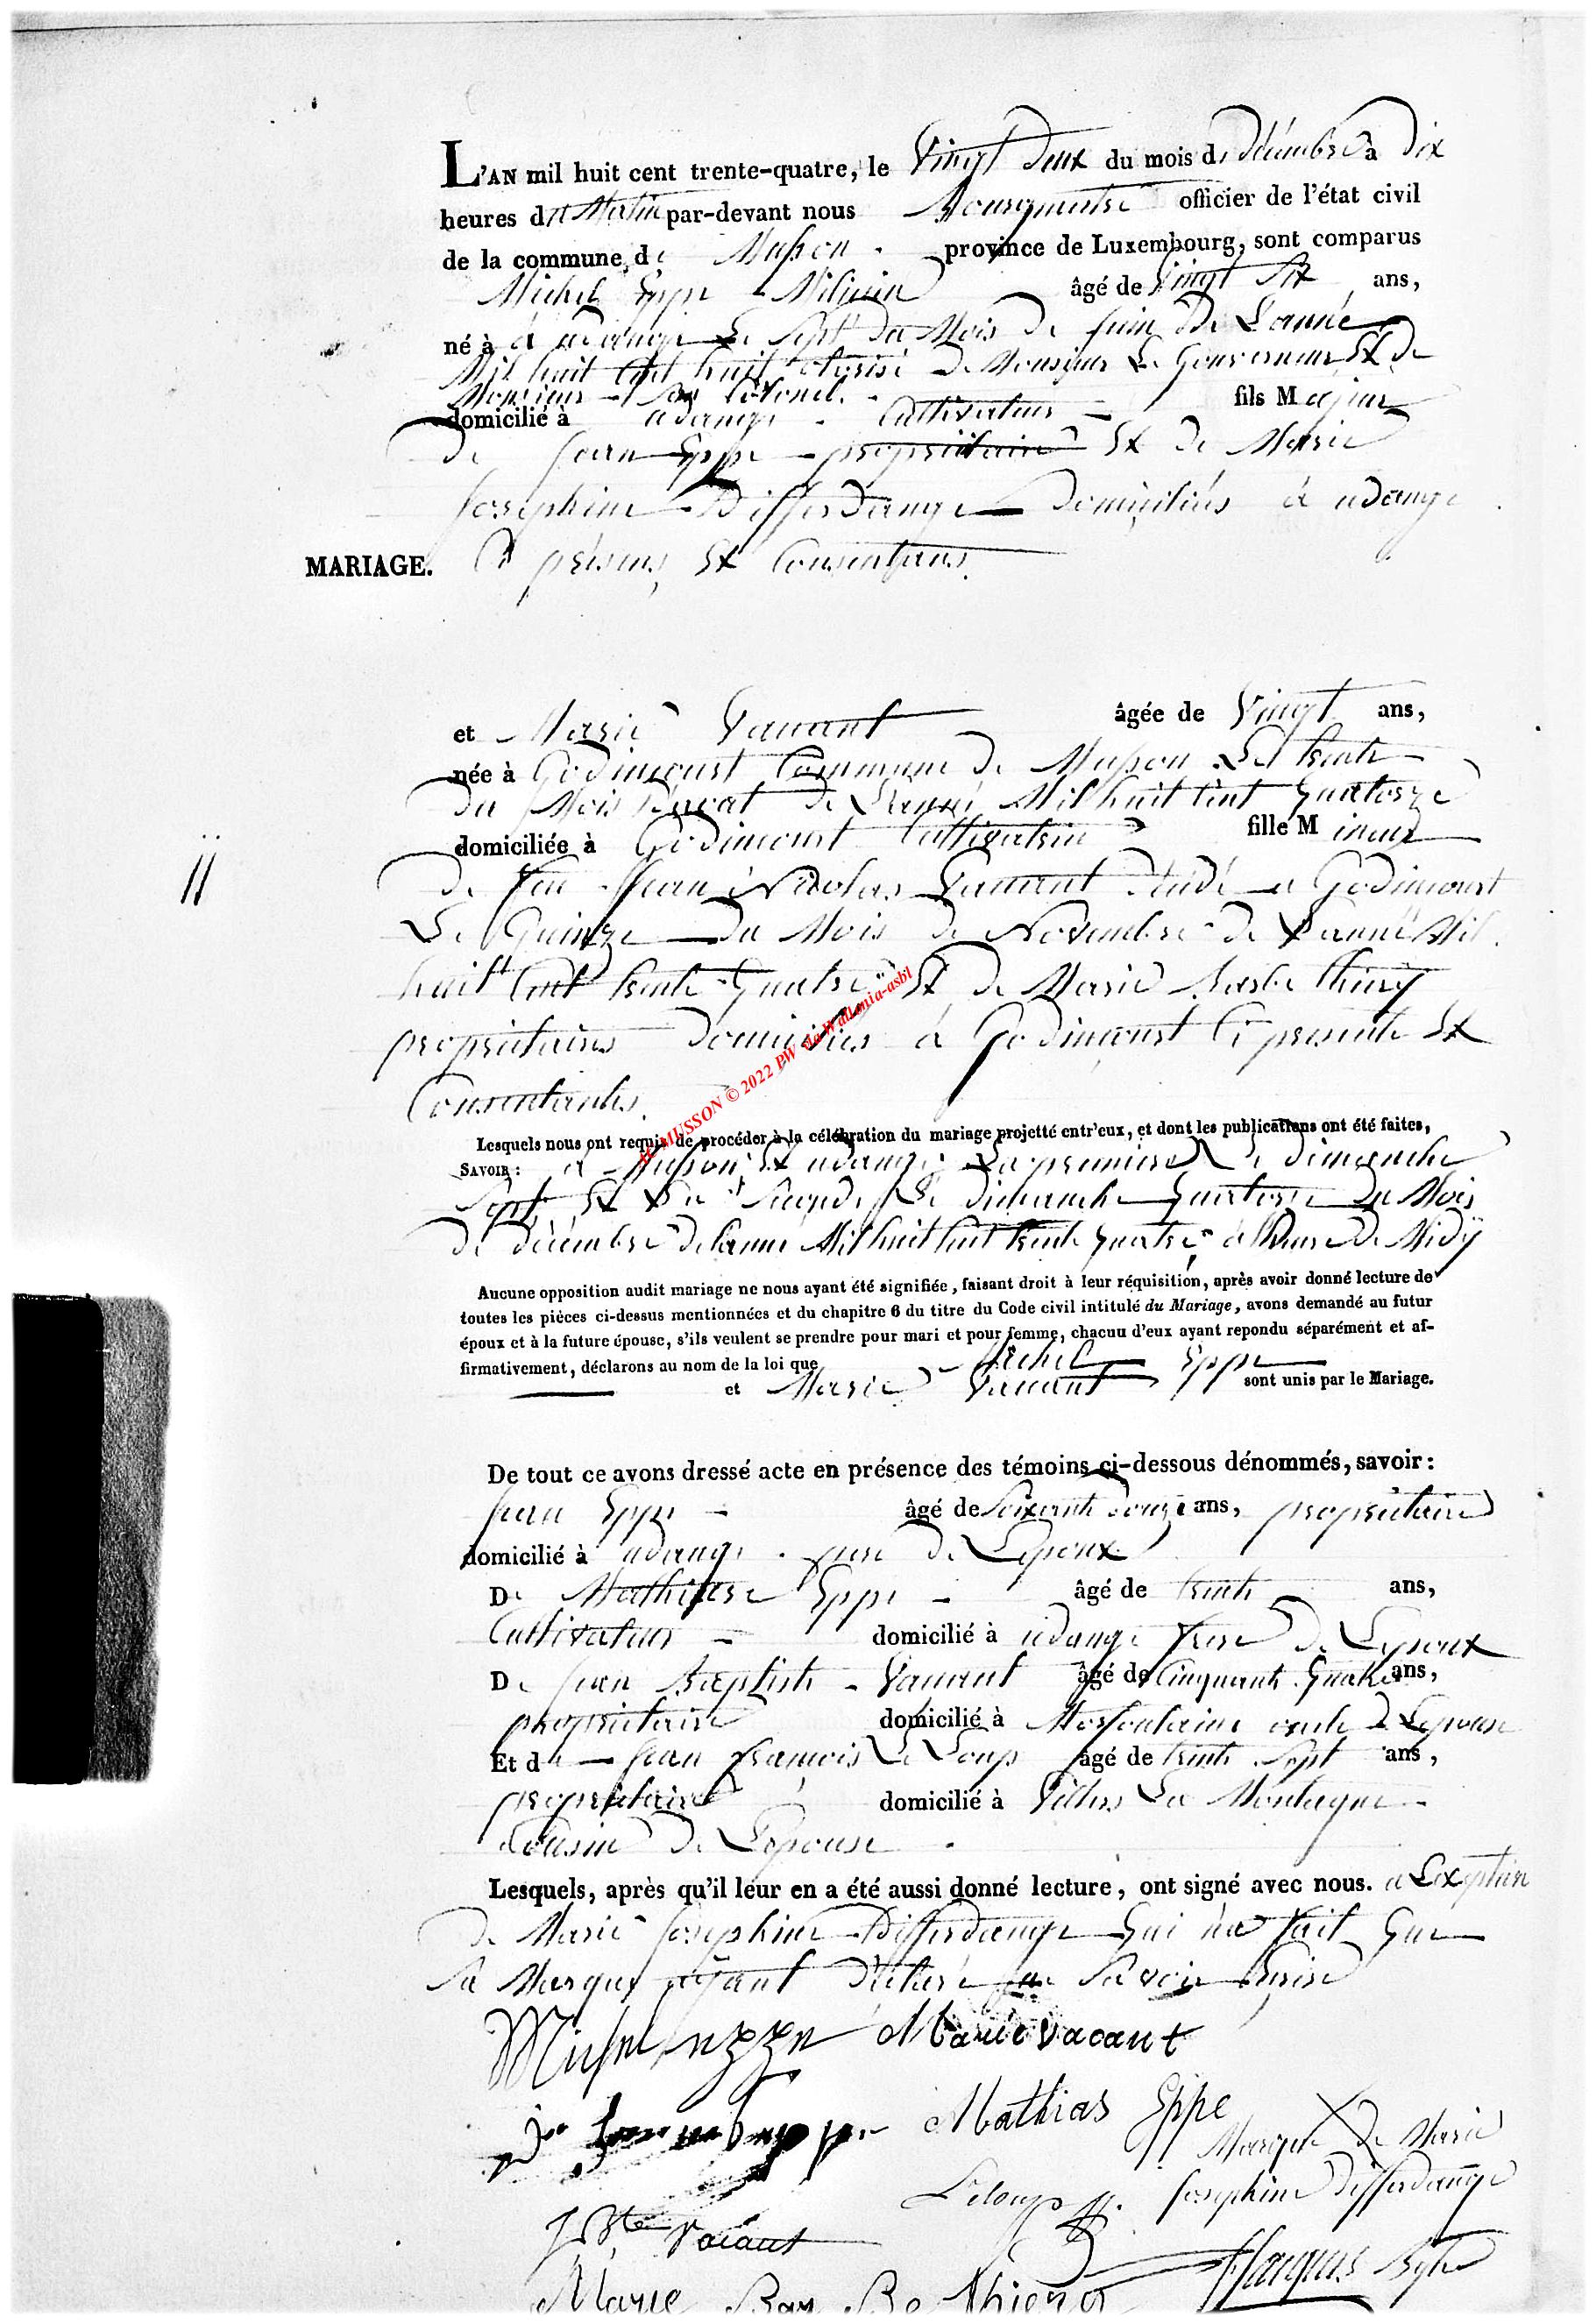 L'AN mil huit cent trente-quatre, le Vingt Deux du mois de décembre à Dix
heures du Matin par-devant nous Bourgmestre officier de l'état civil
de la commune de Musson province de Luxembourg, sont comparus
Michel Eppe Milicien âgé de Vingt Six ans,
né à à udange Le Sept du Mois de Juin De L'année
Mil huit Cent huit otorisé De Monsieur Le Gouverneur Et de
Monsieur Son Colonel.
domicilié à udange Cultivateur fils Majeur
de Jean Eppe propriétaire Et De Marie
Josephine Differdange Domiciliés à udange
présens Et Consentans.
MARIAGE.
et Marie Vacant âgée de Vingt ans,
née à Godincourt Commune De Musson Le trente
du Mois De L'année Mil huit Cent Quatorze
domiciliée à Godincourt Cultivatrice fille Mineur
De feu Jean Nicolas Vacant à Godincourt
Le Quinze Du Mois de Novembre De L'année Mil
huit Cent trente Quatre Et De Marie Barbe thiery
propriétaires Domiciliés à Godincourt Ci présente Et
Consentantes.
11
© 2022 PW de Wallonia-asbl
MUSSON
Lesquels nous ont requis de procéder à la célébration du mariage projetté entr'eux, et dont les publications ont été faites,
SAVOIR : à Musson Et udange La premiere Le dimanche
Sept Et La Seconde Le dimanche Quatorze Du Mois
De décembre De L'année Mil huit Cent trente Quatre à L'heure De Midÿ
Aucune opposition audit mariage ne nous ayant été signifiée, faisant droit à leur réquisition, après avoir donné lecture de
toutes les pièces ci-dessus mentionnées et du chapitre 6 du titre du Code civil intitulé du Mariage, avons demandé au futur
époux et à la future épouse, s'ils veulent se prendre pour mari et pour femme, chacuu d'eux ayant repondu séparément et af-
firmativement, déclarons au nom de la loi que Michel Eppe
et Marie Vacant sont unis par le Mariage.
De tout ce avons dressé acte en présence des témoins ci-dessous dénommés, savoir :
Jean Eppe âgé de Soixante Douze ans, propriétaire
domicilié à udange pere De L'Epoux
De Mathias Eppe âgé de trente ans,
Cultivateur domicilié à udange frere De L'Epoux
De Jean Baptiste Vacant âgé de Cinquante Quatre ans,
propriétaire domicilié à Morfontaine oncle De L'Epouse
Et de Jean francois Le Loup âgé de trente Sept ans,
propriétaire domicilié à Villers La Montagne
Cousin De L'Epouse
Lesquels, après qu'il leur en a été aussi donné lecture, ont signé avec nous. a L'exeption
De Marie Josephine Differdange Qui n'a fait Que
Sa Marque ayant Déclaré ne Savoir Ecrire
Michel Eppe Marie Vacant
Mathias Eppe
Marque De Marie
Josephine Differdange
Leloup
J. Bte Vacant
Marie Bar Be thiery